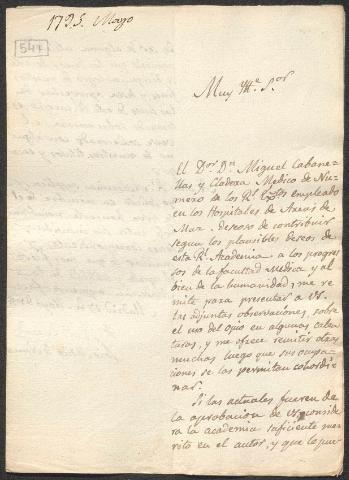 1795. Mayo
541
Muy Ill.e S.or
El D.or D.n Miguel Cabane-
llas y Cladera Medico de Nu-
mero de los R.s Ex.tos empleado
en los Hospitales de Areñs de
Mar. deseoso de contribuir
segun los plausibles deseos de
esta R.l Academia a los progre-
sos de la facultad Medica y al
bien de la humanidad, me re-
mite para presentar a VS.
las adjuntas observaciones, sobre
el uso del opio en algunas calen-
turas, y me ofrece remitir otras
muchas luego que sus ocupa-
ciones se las permitan cohordi-
nar.
Si las actuales fueren de
la aprobacion de VS. conside-
ra la academia suficiente me-
rito en el autor, y que le pue-